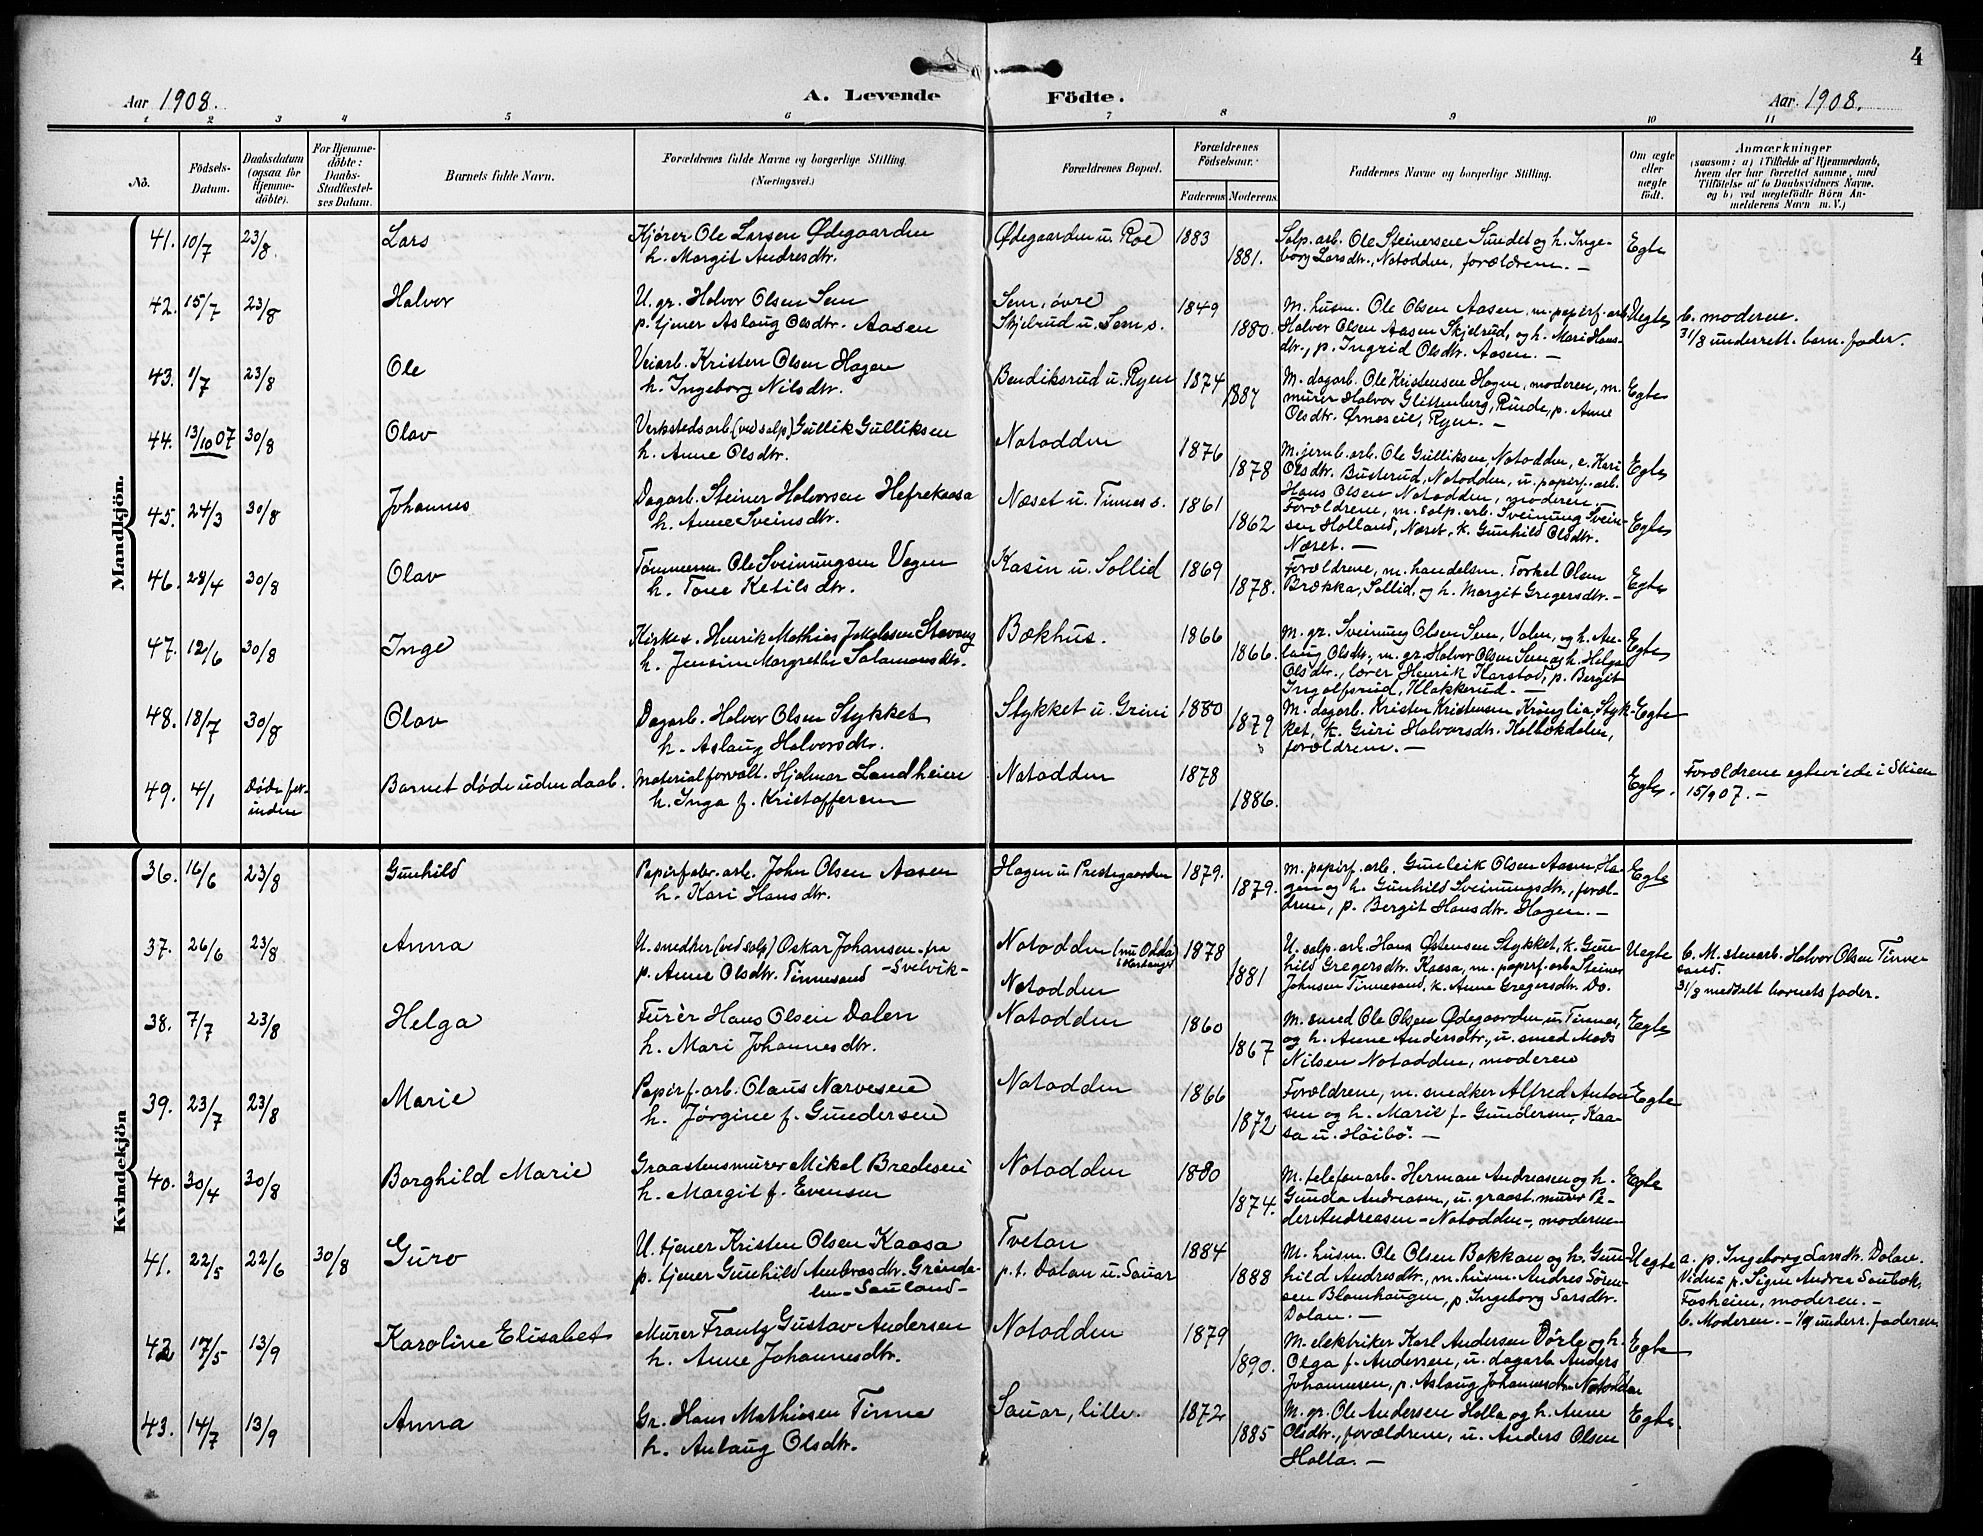 4
Aar 1908.
A. Levende Födte.
Aar. 1908.
1 2 3 4 5 6 7 8 9 10 11
No.
Födsels-
Datum.
Daabsdatum
(ogsaa for
Hjemme-
döbte).
For Hjemme-
döbte:
Daabs-
Stadfæstel-
ses Datum.
Barnets fulde Navn.
Forældrenes fulde Navne og borgerlige Stilling.
(Næringsvei.)
Forældrenes Bopæl.
Forældrenes
Födselsaar.
Faderens Moderens
Faddernes Navne og borgerlige Stilling.
Om ægte
eller
uægte
födt.
Anmærkninger
(saasom: a) i Tilfælde af Hjemmedaab,
hvem der har forrettet samme, med
Tilföielse af to Daabsvidners Navne,
og b) ved uægtefödte Börn An-
melderens Navn m. V.)
Mandkjön.
41. 10/7 23/8. Lars
Kjörer Ole Larsen Ødegaarden
h. Margit Andresdtr.
Ødegaarden u. Roe 1883
1881.
Salp. arb. Ole Steinersen Sundet og h. Inge-
borg Larsdtr., Notodden, forældrene. —
Egte
42. 15/7 23/8 Halvor
U. gr. Halvor Olsen Sem
p. tjener Aslaug Olsdtr. Aasen
Sem, övre
Skjelrud u. Sem s.
1849
1880.
M. husm. Ole Olsen Aasen, m. papirf. arb.
Halvor Olsen Aasen Skjelrud, og h. Mari Hans-
dtr., p. Ingrid Olsdtr. Aasen. —
Uegte
b. moderen.
31/8 underrett. barn. fader.
43. 1/7 23/8 Ole
Veiarb. Kristen Olsen Hagen
h. Ingeborg Nilsdtr.
Bendiksrud u. Ryen 1874
1887
M. dagarb. Ole Kristensen Hagen, moderen, m.
murer Halvor Glittenberg, Rinde, p. Anne
Olsdtr. Ørneseie, Ryen. —
Egte
44. 13/10 07 30/8 Olav
Verkstedsarb. (ved salp) Gullik Gulliksen
h. Anne Olsdtr.
Notodden 1876
1878
M. jernb. arb. Ole Gulliksen, Notodden, e. Kari
Olsdtr. Busterud, Notodden, u. papirf. arb.
Hans Olsen Notodden, moderen. —
Egte
45. 24/3 30/8 Johannes
Dagarb. Steiner Halvorsen Hefrekaasa
h. Anne Sveinsdtr.
Næset u. Tinnes s. 1861
1862
Forældrene, m. salp. arb. Sveinung Svein-
sen Holland, Næset, k. Gunhild Olsdtr.
Næset. —
Egte
46. 28/4 30/8 Olav
Tömmerm. Ole Sveinungsen Vegen
h. Tone Ketilsdtr.
Kasin u. Sollid 1869
1878.
Forældrene, m. handelsm. Torkel Olsen
Brækka, Sollid, og h. Margit Gregersdtr. —
Egte
47. 12/6 30/8 Inge
Kirkes. Henrik Mathias Jakobsen Stavang
h. Jensine Margrethe Salamonsdtr.
Bækhus. 1866
1866.
M. gr. Sveinung Olsen Sem, Valen, og h. As-
laug Olsdtr., m. gr. Halvor Olsen Sem og h. Helga
Olsdtr., lærer Henrik Karstad, p. Bergit
Ingolfsrud, Klokkerud. —
Egte
48. 18/7 30/8 Olav
Dagarb. Halvor Olsen Stykket
h. Aslaug Halvorsdtr.
Stykket u. Grini 1880
1879
M. dagarb. Kristen Kristensen Kronglia, Styk-
ket, k. Guri Halvorsdtr. Kolbækdalen,
forældrene. —
Egte
49. 4/1 Döde for-
inden
Barnet döde uden daab.
Materialforvalt. Hjalmar Landheim
h. Inga f. Kristoffersen
Notodden 1878
1886.
Egte.
Forældrene egteviede i Skien
15/9 07. —
Kvindekjön
36. 16/6 23/8 Gunhild
Papirfabr. arb. John Olsen Aasen
h. Kari Hansdtr.
Hagen u. Prestegaarden 1879.
1879.
M. papirf. arb. Gunleik Olsen Aasen Ha-
gen og h. Gunhild Sveinungsdtr., foræl-
drene, p. Bergit Hansdtr. Hagen. —
Egte
37. 26/6 23/8 Anna
U. smedker (ved salp) Oskar Johansen fra
p. Anne Olsdtr. Tinnesand — Svelvik —
Notodden (nu Odda
i Hardanger)
Notodden
1878
1881
U. salp. arb. Hans Østensen Stykket, k. Gun-
hild Gregersdtr. Kaasa, m. papirf. arb. Steiner
Johnsen Tinnesand, k. Anne Gregersdtr. Do.
Uegte
b. M. stenarb. Halvor Olsen Tinne-
sand.
31/8 meddelt barnets fader.
38. 7/7 23/8 Helga
Furér Hans Olsen Dalen
h. Mari Johannesdtr.
Notodden 1860
1867
M. smed Ole Olsen Ødegaarden u. Tinnes,
og h. Anne Andersdtr., u. smed Mads
Nilsen Notodden, moderen
Egte
39. 23/7 23/8 Marie
Papirf. arb. Olaus Narvesen
h. Jørgine f. Gundersen
Notodden 1866
1872
Forældrene, m. smedker Alfred Anton-
sen og h. Marie f. Gundersen, Kaa-
sa u. Höibö. —
Egte
40. 30/4 30/8 Borghild Marie
Graastensmurer Mikal Bredesen
h. Margit f. Evensen
Notodden 1880
1874.
M. telefonarb. Herman Andreasen og h.
Gunda Andreasen, u. graast. murer Pe-
der Andreasen — Notodden —, moderen
Egte
41. 22/5 22/6 30/8 Guro
U. tjener Kristen Olsen Kaasa
p. tjener Gunhild Andresdtr. Grönda-
len — Sauland —
Tvetan
p.t. Dalan u. Sauar
1884
1888
M. husm. Ole Olsen Bakkan og h. Gun-
hild Andresdtr., m. husm. Andres Sören-
sen Blomhaugen, p. Ingeborg Larsdtr.
Dalan. —
Uegte
a. p. Ingeborg Larsdtr. Dalan.
Vidner p. Signe Andrea Saubæk,
Fosheim, moderen. —
b. Moderen. — 1/9 underr. faderen.
42 17/5 13/9 Karoline Elisabet
Murer Frantz Gustav Andersen
h. Anne Johannesdtr.
Notodden 1879
1890.
M. elektriker Karl Andersen Dörle og h.
Olga f. Andersen, u. dagarb. Anders
Johannesen, p. Aslaug Johannesdtr. Notodden
Egte
43. 14/7 13/9 Anna
Gr. Hans Mathisen Tinne
h. Anlaug Olsdtr.
Sauar, lille. 1872
1885
M. gr. Ole Andersen Holla og h. Anne
Olsdtr., forældrene, u. Anders Olsen
Holla. —
Egte.